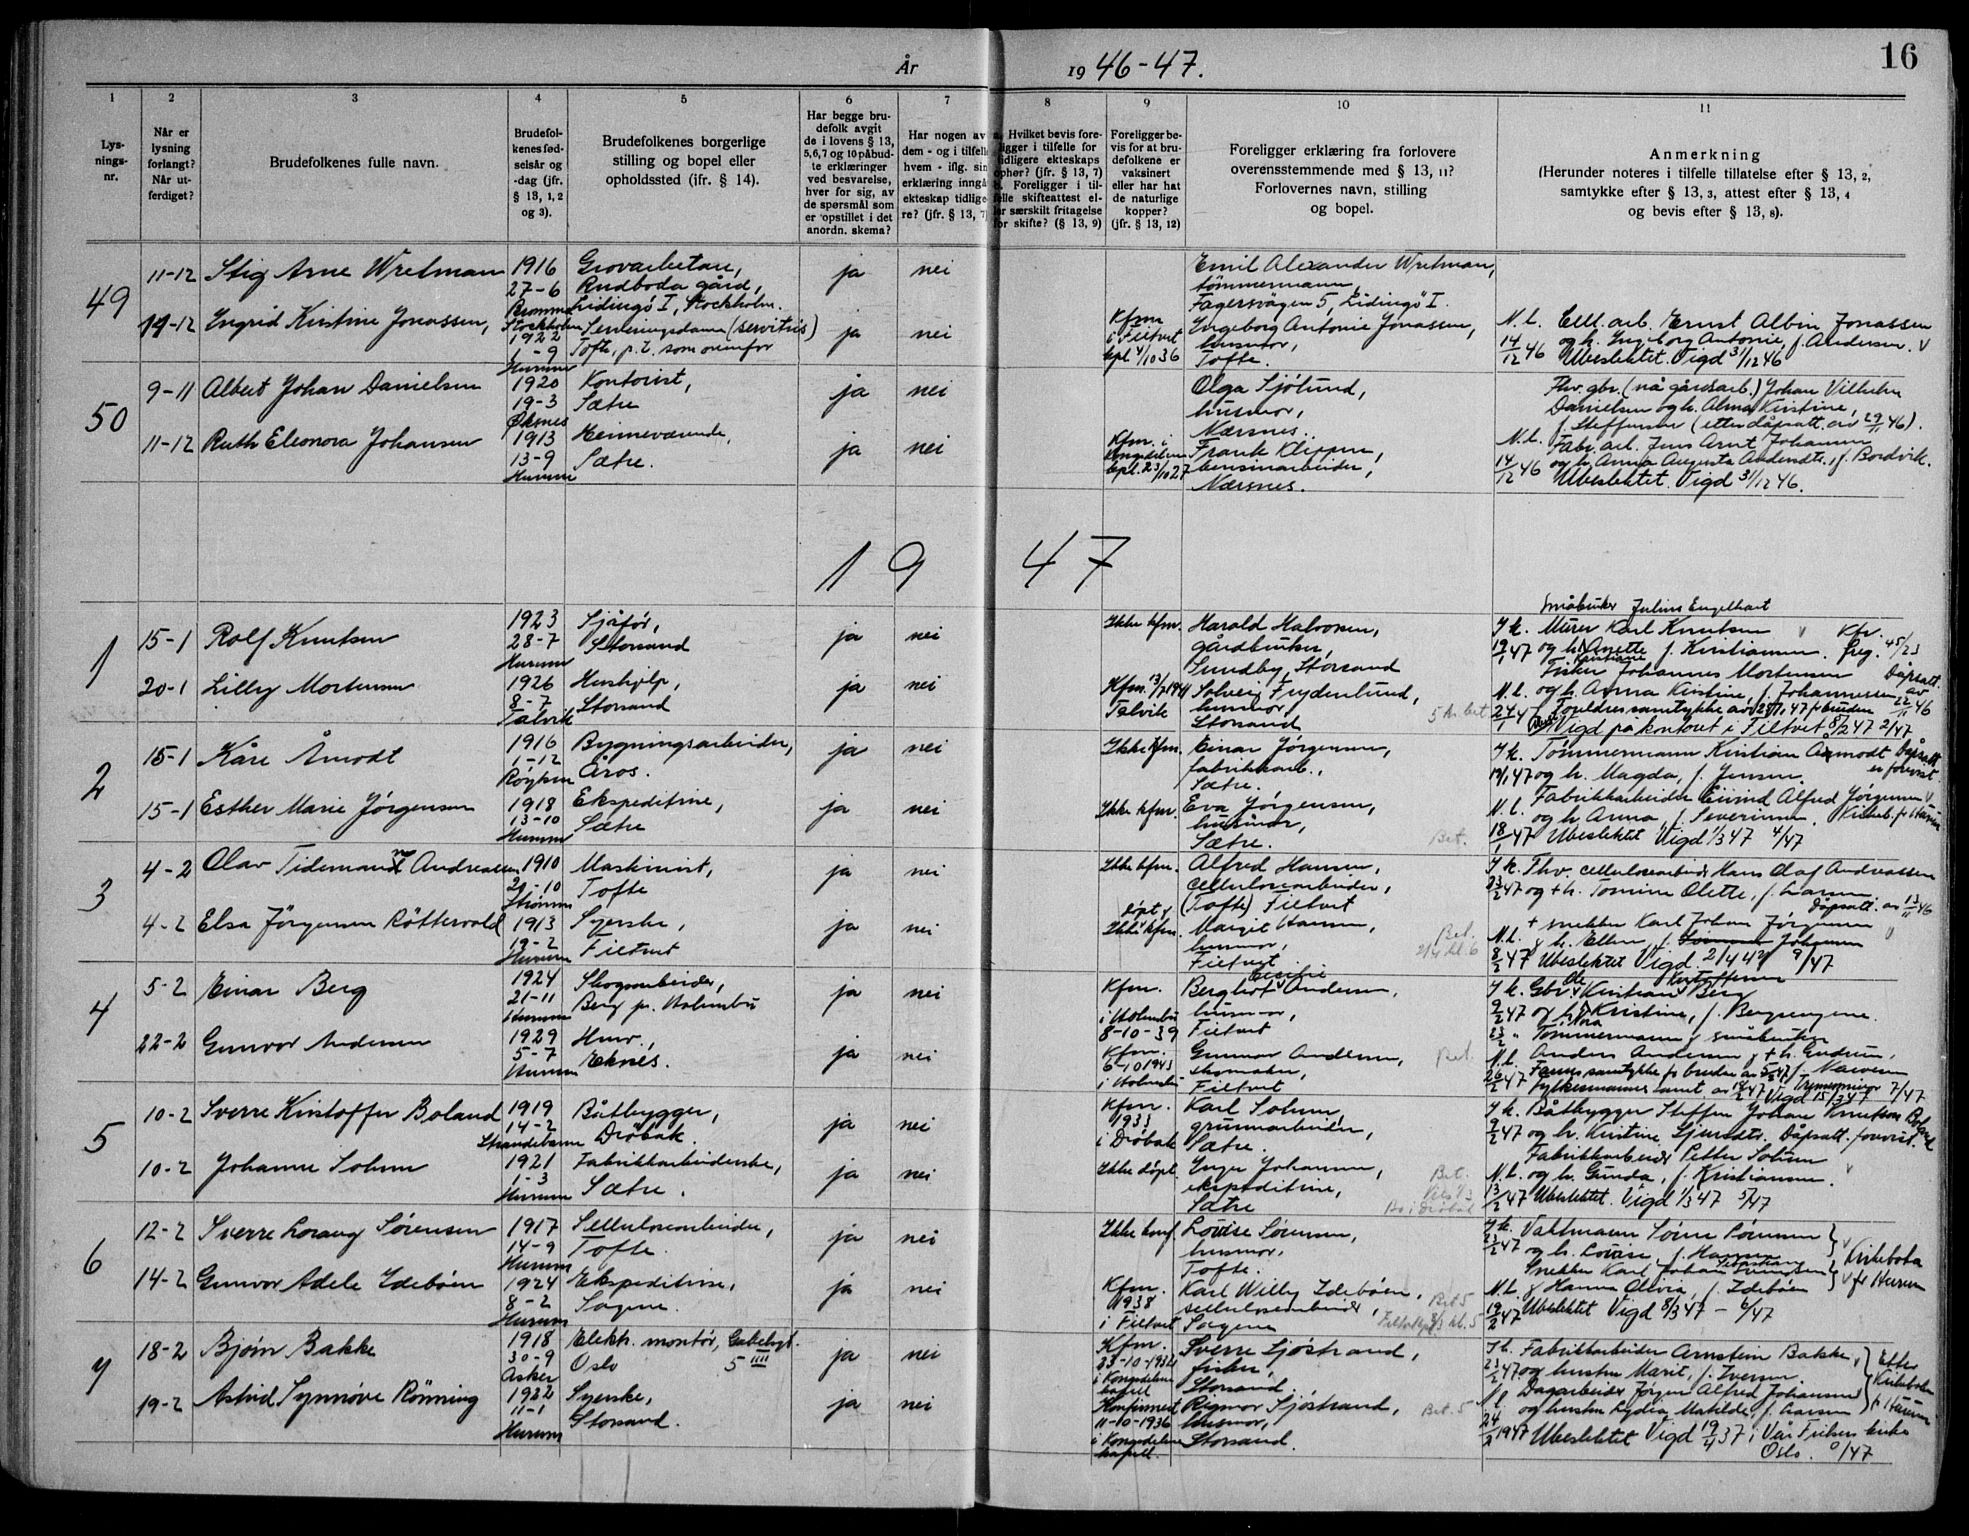 År 1946-47.
16
1 2 3 4 5 6 7 8 9 10 11
Lysningsnr.
Når er lysning forlangt? Når utferdiget?
Brudefolkenes fulle navn.
Brudefolkenes fødselsår og -dag (jfr. § 13, 1, 2 og 3).
Brudefolkenes borgerlige stilling og bopel eller opholdssted (ifr. § 14).
Har begge brudefolk avgit de i lovens § 13, 5, 6, 7 og 10 påbudte erklæringer ved besvarelse, hver for sig, av de spørsmål som er opstillet i det anordn. skema?
Har nogen av dem - og i tilfelle hvem - iflg. sin erklæring inngå ekteskap tidligere? (jfr. § 13, 7)
a. Hvilket bevis foreligger i tilfelle for tidligere ekteskaps ophør? (jfr. § 13, 7)
Foreligger i tilfelle skifteattest eller særskilt fritagelse for skifte? (§ 13, 9)
Foreligger bevis for at brudefolkene er vaksinert eller har hat de naturlige kopper? (jfr. § 13, 12)
Foreligger erklæring fra forlovere overensstemmende med § 13, 11? Forlovernes navn, stilling og bopel.
Anmerkning
(Herunder noteres i tilfelle tillatelse efter § 13, 2, samtykke efter § 13, 3, attest efter § 13, 4 og bevis efter § 13, 8).
49
11-12 Stig Arne Wretman 1916 27-6 Bromma Stockholm Grovarbetare, Rudboda gård, Lidingö I, Stockholm. ja nei
Emil Alexander Wretman, tømmermann, Fagersvägen 5, Lidingö I.
14-12 Ingrid Kristine Jonassen, 1922 1-9 Hurum Serveringsdame (servitris) Tofte, p.t. som ovenfor ja nei
Kfm i Filtvet kpl. 4/10 36 Ingeborg Antonie Jonassen, husmor, Tofte.
N.l. 14/12 46 Cell. arb. Ernst Albin Jonassen og h. Ingeborg Antonie, f. Andersen. Ubeslektet. Vigd 31/12 46
50
9-11 Albert Johan Danielsen 1920 19-3 Øksnes Kontorist, Sætre ja nei
Olga Sjølund, husmor, Nærsnes.
Fhv. gbr. (nå gårdsarb.) Johan Vilhelm Danielsen og h. Alma Kristine, f. Steffensen (etter dåpsatt. av 29/11 46).
11-12 Ruth Eleonora Johansen 1913 13-9 Hurum Heimeværende, Sætre. ja nei
Kfm. i Kongsdelene kpl. 23/10 27 Frank Klippen, bensinarbeider, Nærsnes.
N.l. 14/12 46 Fabr. arb. Jens Arnt Johansen og h. Anna Augusta Andersdtr., f. Bordvik. Ubeslektet. Vigd 31/12 46.
1947
1
15-1 Rolf Knutsen 1923 28-7 Hurum Sjåfør, Storsand ja nei
Ikke kfm. Harald Halvorsen, gårdbruker, Sundby, Storsand
småbruker Julius Engelhart
J.k. 19/1 47 Murer Karl Knutsen og h. Anette f. Kristiansen.
20-1 Lilly Mortensen 1926 8-7 Talvik Hushjelp, Storsand ja nei
Kfm. 13/7 1941 Talvik Solveig Frydenlund, husmor, Storsand
Fisker Johannes Mortensen og h. Anna Kristine, f. Johannessen Dåpsatt. av 22/11 46
Foreldresamtykke av 27/1 47 f. bruden
Vigd på kontoret i Filtvet 8/2 47 2/47
2
15-1 Kåre Åmodt 1916 1-12 Røyken Bygningsarbeider, Åros. ja nei
Ikke kfm. Einar Jørgensen, fabrikkarb., Sætre.
J.k. 19/1 47 Tømmermann Kristian Åmodt og h. Magda, f. Jensen. Dåpsatt. er forevist
15-1 Esther Marie Jørgensen 1918 13-10 Hurum Ekspeditrise, Sætre ja nei
Ikke kfm. Eva Jørgensen, husmor, Sætre. Bet.
N.l. 18/1 47 Fabrikkarbeider Eivind Alfred Jørgensen og h. Anna, f. Severinsen. Kirkeb. fr Hurum
Ubeslektet Vigd 1/3 47 4/47
3
4-2 Olav Tidemann Andreassen 1910 21-10 Maskinist, Tofte ja nei
Ikke kfm. Alfred Hansen, cellulosearbeider, (Tofte) Filtvet
J.k. 23/2 47 Fhv. cellulosearbeider Hans Olaf Andreassen og + h. Tomine Olette, f. Larsen Dåpsatt. av 13/11 46
4-2 Elsa Jörgensen Röttervold 1913 19-2 Hurum Syerske, Filtvet ja nei
døpt & Ikke kfm. Margit Hansen, husmor, Filtvet Bet.
N.l. 8/2 47 + snekker Karl Johan Jørgensen & h. Ellen, f. Johansen
Ubeslektet Vigd 2/4 47 9/47
4
5-2 Einar Berg 1924 21-11 Hurum Skogsarbeider, Berg pr. Holmsbu ja nei
Kfm. i Holmsbu 8-10-39 Berghot Cecilie Andersen, husmor, Filtvet
J.k. 9/2 47 Gbr. Ole Kristian Kristoffersen Berg og h. Kristine, f. Bergsengene.
22-2 Gunvor Andersen 1929 5-7 Hurum Husv., Eknes. ja nei
Kfm. 6-10 1943 i Holmsbu Gunnar Andersen, skomaker, Filtvet Bet.
23/2 " Tømmermann & småbruker
N.l. 26/2 47 Anders Andersen & + h. Gudrun, f. Næversen
Farens samtykke for bruden av 5/2 47
Fylkesmannens samt. av 14/2 47 Vigd 15/3 47 7/47
5
10-2 Sverre Kristoffer Boland 1919 14-2 Strandebarm Båtbygger, Drøbak. ja nei
Kfm. 1933 i Drøbak Karl Solum, grunnarbeider, Sætre.
J.k. 9/2 47 Båtbygger Steffen Johan Knutsen Boland og h. Kristine Sjursdtr. Dåpsatt. forevist.
10-2 Johanne Solum 1921 1-3 Hurum Fabrikkarbeiderske, Sætre. ja nei
Ikke døpt. Inger Johansen, ekspeditrise, Sætre Bet. Bo i Drøbak
N.l. 13/2 47 Fabrikkarbeider Petter Solum og h. Gunda, f. Kristiansen.
Ubeslektet. Vigd 1/3 47 5/47
6
12-2 Sverre Lorang Sørensen 1917 14-9 Hurum Cellulosearbeider, Tofte. ja nei
Ikke konf. Lovise Sørensen, husmor, Tofte.
J.k. 23/2 47 Vaktmann Sørine Sørensen og h. Lovise, f. Hansen Kirkeboka fr Hurum
14-2 Gunvor Adele Idebøen 1924 8-2 Hurum Ekspeditrise, Sagene. ja nei
Kfm. 1938 i Filtvet Karl Willy Idebøen, cellulosearbeider, Sagene Bet 5
N.l. 19/2 47 Snekker Karl Johan Sebastian Svendsen & Hanna Olivia, f. Idebøen
Ubeslektet Vigd 8/3 47 - 6/47
7
18-2 Bjørn Bakke 1918 30-9 Asker Elektr. montør, Gabelsgt. 5 IIII Oslo ja nei
Kfm. 23-10-1932 i Kongsdelene kapell Sverre Sjøstrand, fisker, Storsand
J.k. 23/2 47 Fabrikkarbeider Arnstein Bakke, og hustru Marit, f. Iversen. Etter Kirkeboken f. Hurum
19-2 Astrid Synnøve Rönning 1922 11-1 Hurum Syerske, Storsand. ja nei
Konfirmert 11-10-1936 i Kongsdelene kapell Rigmor Sjöstrand, husmor, Storsand. Bet. 5
N.l. 24/2 1947 Dagarbeider Jørgen Alfred Johansen og hustru Lydia Matilde, f. Larsen
Ubeslektet Vigd 19/4 37 i Vår Frelsers kirke Oslo. 8/47